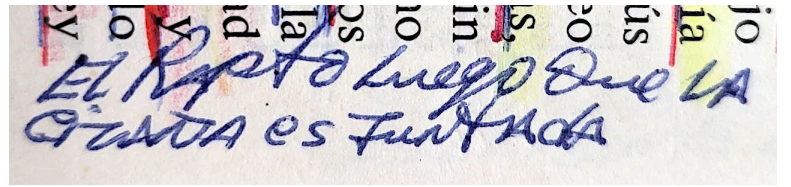 y
lo
y
d
la
os
no
in
us,
eo
ús
ía
jo
El Rapto Luego Que LA
CizAÑA es JuntAdA